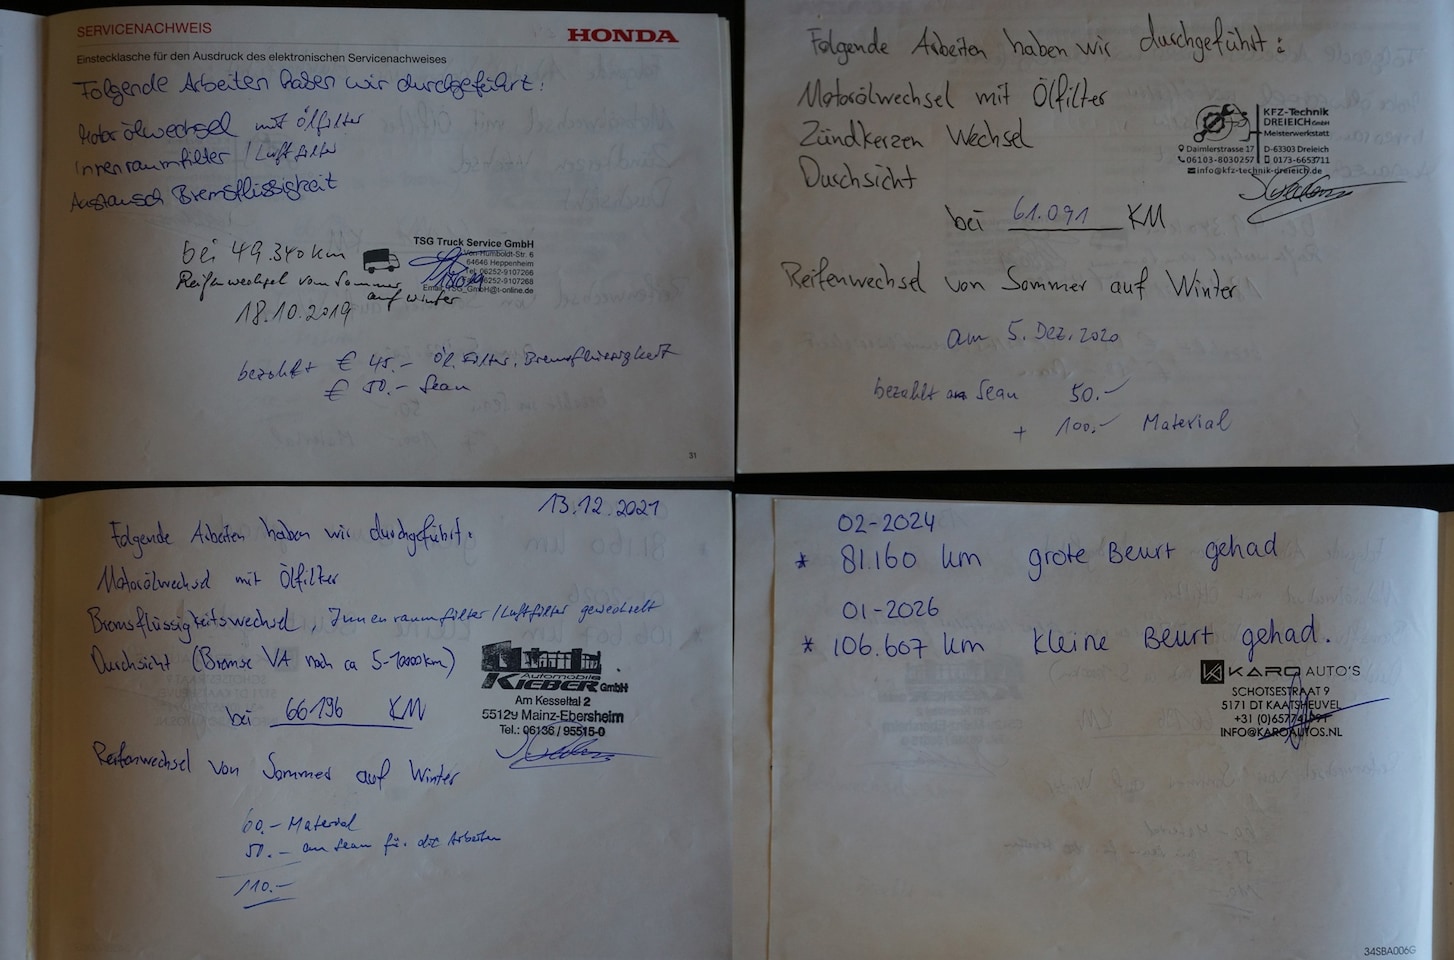 SERVICENACHWEIS
HONDA
Einstecklasche für den Ausdruck des elektronischen Servicenachweises
Folgende Arbeiten haben wir durchgeführt:
Motorölwechsel mit Ölfilter
Innenraumfilter / Luftfilter
Austausch Bremsflüssigkeit
bei 49.340 km
Reifenwechsel vom Sommer
auf Winter
18.10.2019
TSG Truck Service GmbH
Von-Humboldt-Str. 6
64646 Heppenheim
Tel. 06252-9107266
9107268
Email: TSG_GmbH@t-online.de
bezahlt € 45.- Öl. Filter. Bremsflüssigkeit
€ 50.- Sean
31
Folgende Arbeiten haben wir durchgeführt:
Motorölwechsel mit Ölfilter
Zündkerzen Wechsel
Durchsicht
KFZ-Technik
DREIEICH GmbH
Meisterwerkstatt
Daimlerstrasse 17 D-63303 Dreieich
06103-8030257 0173-6653711
info@kfz-technik-dreieich.de
bei 61.091 KM
Reifenwechsel von Sommer auf Winter
am 5. Dez. 2020
bezahlt an Sean 50.-
+ 100.- Material
13.12.2021
Folgende Arbeiten haben wir durchgeführt:
Motorölwechsel mit Ölfilter
Bremsflüssigkeitswechsel, Innenraumfilter / Luftfilter gewechselt
Durchsicht (Bremse VA noch ca 5-10000km)
bei 66196 KM
Automobile
KIEBER GmbH
Am Kesseltal 2
55129 Mainz-Ebersheim
Tel.: 06136 / 95515-0
Reifenwechsel von Sommer auf Winter
60.- Material
50.- an Sean für die Arbeiten
110.-
02-2024
* 81.160 km grote Beurt gehad
01-2026
* 106.607 km kleine Beurt gehad.
KARO AUTO'S
SCHOTSESTRAAT 9
5171 DT KAATSHEUVEL
+31 (0)65774
INFO@KAROAUTOS.NL
34SBA006G